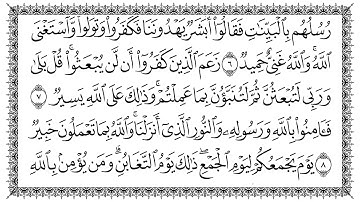 رُسُلُهُم بِالْبَيِّنَاتِ فَقَالُوا أَبَشَرٌ يَهْدُونَنَا فَكَفَرُوا وَتَوَلَّوا وَّاسْتَغْنَى
اللَّهُ وَاللَّهُ غَنِيٌّ حَمِيدٌ ٦ زَعَمَ الَّذِينَ كَفَرُوا أَن لَّن يُبْعَثُوا قُلْ بَلَى
وَرَبِّي لَتُبْعَثُنَّ ثُمَّ لَتُنَبَّؤُنَّ بِمَا عَمِلْتُمْ وَذَلِكَ عَلَى اللَّهِ يَسِيرٌ ٧
فَآمِنُوا بِاللَّهِ وَرَسُولِهِ وَالنُّورِ الَّذِي أَنزَلْنَا وَاللَّهُ بِمَا تَعْمَلُونَ خَبِيرٌ
٨ يَوْمَ يَجْمَعُكُمْ لِيَوْمِ الْجَمْعِ ذَلِكَ يَوْمُ التَّغَابُنِ وَمَن يُؤْمِن بِاللَّهِ